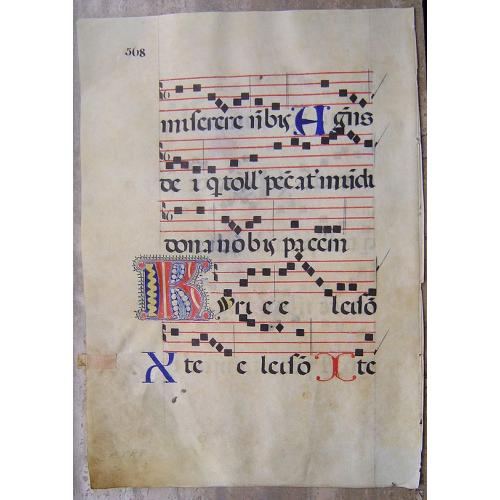 568
miserere nobis Agnus
de i q toll peccat mundi
dona nobis pacem
Kyrie e leiso
Xte e leiso Xte